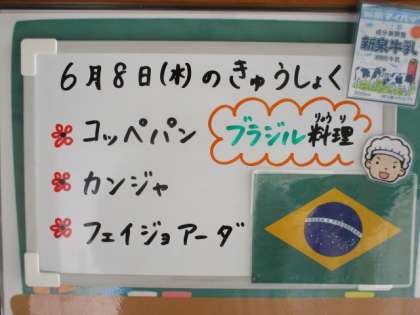 6月8日(水)のきゅうしょく
コッペパン
ブラジル料理
りょうり
カンジャ
フェイジョアーダ
成分無調整